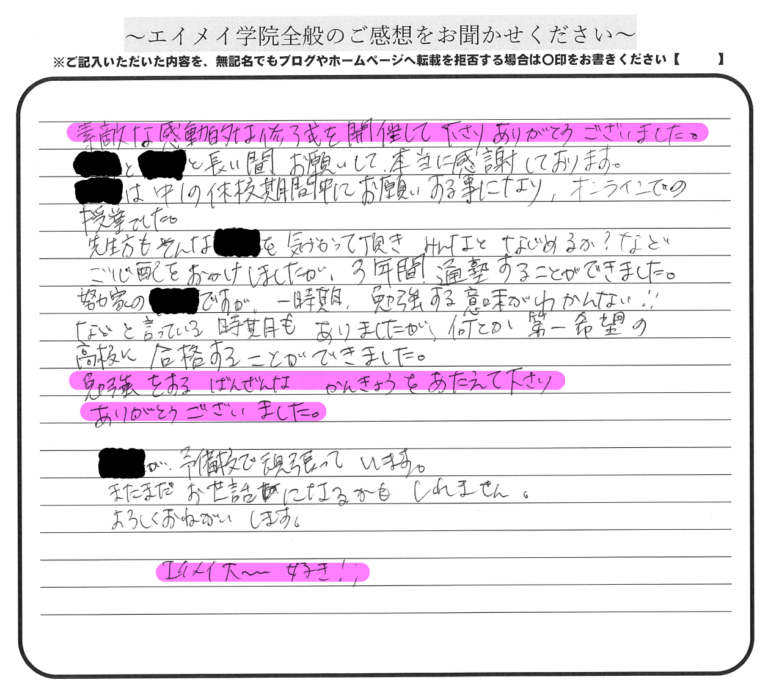 ～エイメイ学院全般のご感想をお聞かせください～
※ご記入いただいた内容を、無記名でもブログやホームページへ転載を拒否する場合は〇印をお書きください【　　】
素敵な感動的な修了式を開催して下さりありがとうございました。
と と長い間 お願いして、本当に感謝しております。
は中1の休校期間中にお願いする事になり、オンラインでの
授業でした。
先生方もそんな を気づかって頂き みんなと なじめるか？など
ご心配をおかけしましたが、3年間 通塾することができました。
努力家の ですが、一時期、勉強する意味がわかんない!!
などと言っている時期も ありましたが、何とか 第一希望の
高校に 合格することができました。
勉強をする ばんぜんな かんきょうをあたえて下さり
ありがとうございました。
が、予備校で頑張って います。
またまだ お世話になるかも しれません。
よろしくおねがい します。
エイメイ大～～ 好き!!